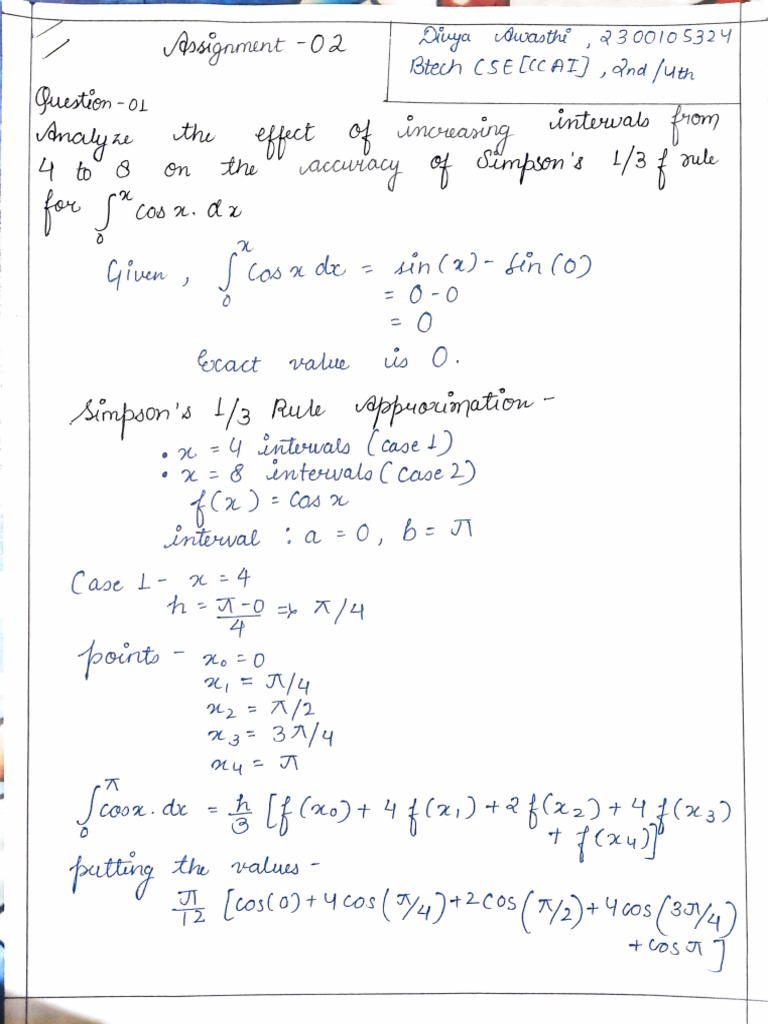 Assignment - 02
Divya Awasthi, 2300105324
Btech CSE[CCAI], 2nd/4th
Question-01
Analyze the effect of increasing intervals from
4 to 8 on the accuracy of Simpson's 1/3 f rule
for ∫₀ˣ cos x. dx
Given, ∫₀ˣ cos x dx = sin(x) - sin(0)
= 0 - 0
= 0
Exact value is 0.
Simpson's 1/3 Rule Approximation -
• x = 4 intervals (case 1)
• x = 8 intervals (case 2)
f(x) = cos x
interval : a = 0, b = π
Case 1 - x = 4
h = (π-0)/4 => π/4
points - x₀ = 0
x₁ = π/4
x₂ = π/2
x₃ = 3π/4
x₄ = π
∫₀^π cos x. dx = h/3 [f(x₀) + 4 f(x₁) + 2 f(x₂) + 4 f(x₃)
+ f(x₄)]
putting the values -
π/12 [cos(0) + 4 cos(π/4) + 2 cos(π/2) + 4 cos(3π/4)
+ cos π]